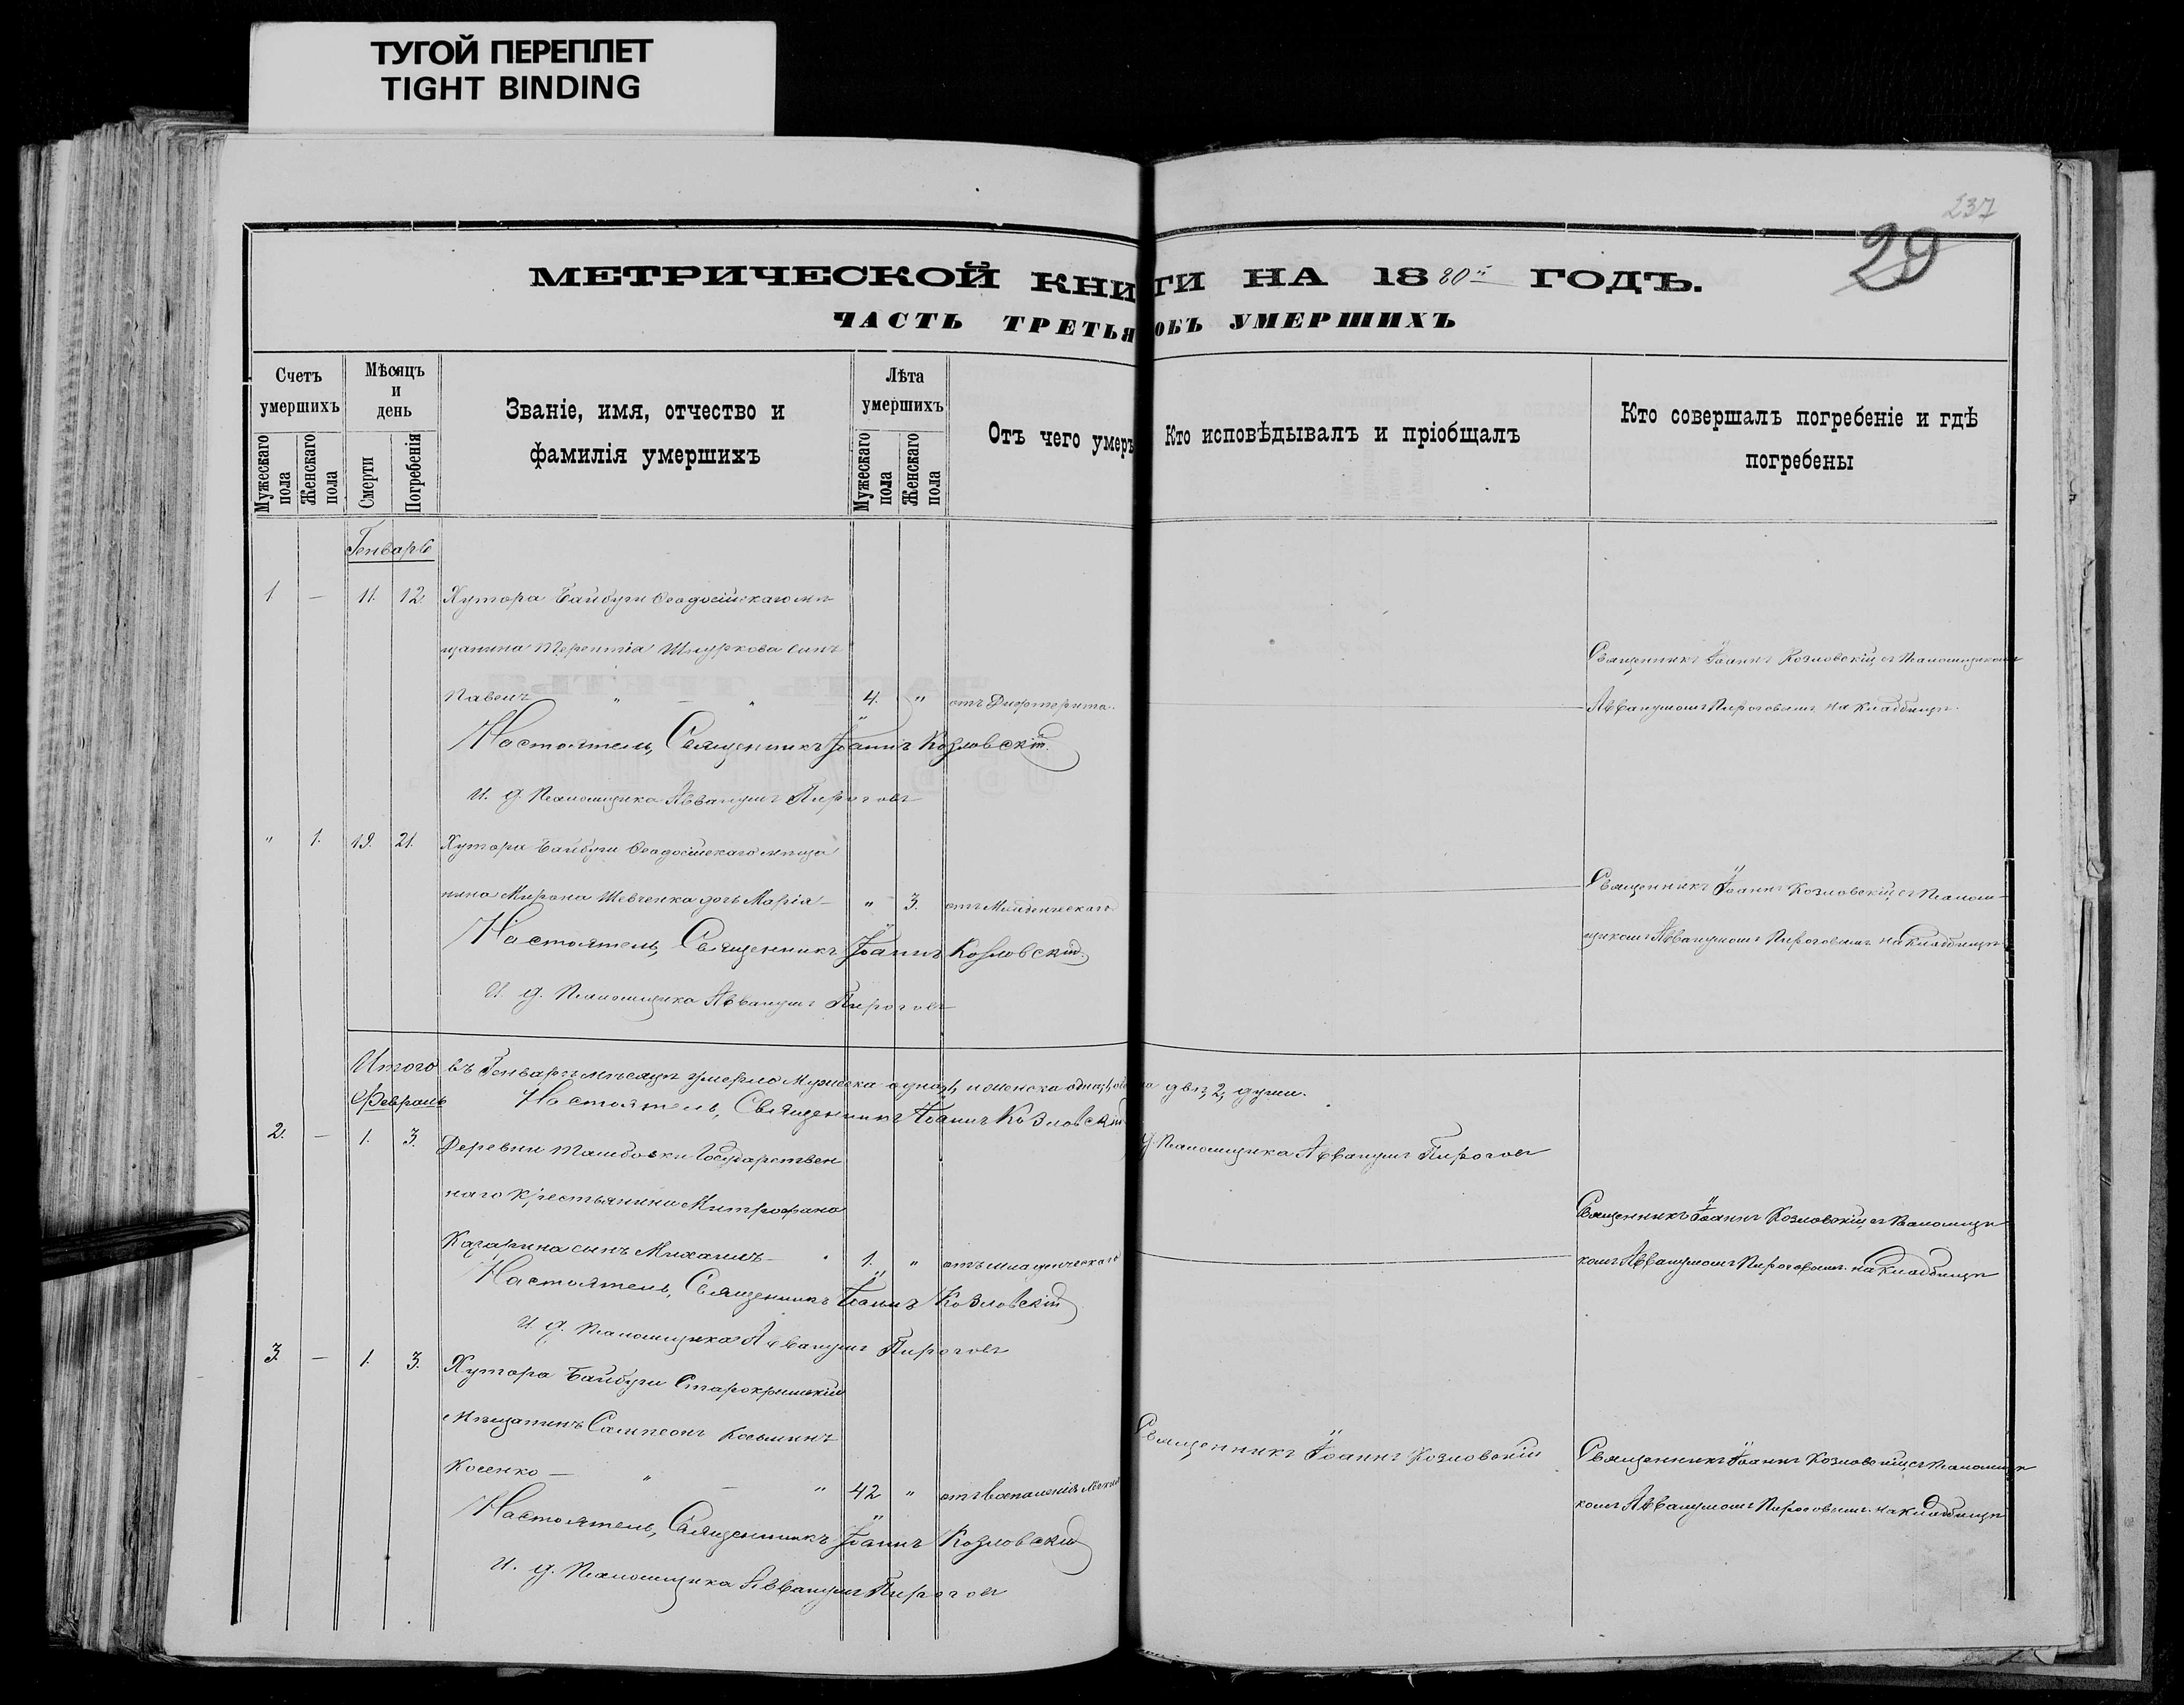 ТУГОЙ ПЕРЕПЛЕТ
TIGHT BINDING
237
29
МЕТРИЧЕСКОЙ КНИГИ НА 1880й ГОДЪ.
ЧАСТЬ ТРЕТЬЯ ОБЪ УМЕРШИХЪ
Счетъ умершихъ
Мужескаго пола
Женскаго пола
Мѣсяцъ и день
Смерти
Погребенія
Званіе, имя, отчество и фамилія умершихъ
Лѣта умершихъ
Мужескаго пола
Женскаго пола
Отъ чего умеръ
Кто исповѣдывалъ и пріобщалъ
Кто совершалъ погребеніе и гдѣ погребены
Генварь
1 — 11. 12. Хутора Байбуги Ѳеодосійскаго мѣ-
щанина Терентія Шнуркова сынъ
Павелъ " — " 4. " отъ Дифтерита.
Священникъ Іоаннъ Козловскій съ Псаломщикомъ
Аввакумомъ Пироговымъ на кладбищѣ.
Настоятель, Священникъ Іоаннъ Козловскій.
И. д. Псаломщика Аввакумъ Пироговъ
" 1. 19. 21. Хутора Байбуги Ѳеодосійскаго мѣща
нина Мирона Шевченка дочь Марія — " 3. отъ Младенческаго
Священникъ Іоаннъ Козловскій съ Псалом-
щикомъ Аввакумомъ Пироговымъ на кладбищѣ
Настоятель, Священникъ Іоаннъ Козловскій.
И. д. Псаломщика Аввакумъ Пироговъ
Итого въ Генварѣ мѣсяцѣ умерло Мужеска одна 1, женска одна 1, двѣ 2, души.
Февраль
Настоятель, Священникъ Іоаннъ Козловскій
д. Псаломщика Аввакумъ Пироговъ
2. — 1. 3. Деревни Тамбовки Государствен
наго Крестьянина Митрофана
сынъ Михаилъ — 1. " отъ младенческаго
Священникъ Іоаннъ Козловскій съ Псаломщи
комъ Аввакумомъ Пироговымъ на кладбищѣ
Настоятель, Священникъ Іоаннъ Козловскій
И. д. Псаломщика Аввакумъ Пироговъ
3. — 1. 3. Хутора Байбуги Старокрымскій
Мѣщанинъ Сампсонъ Косминъ
Косенко — " — " 42 " отъ Воспаленія
Священникъ Іоаннъ Козловскій
Священникъ Іоаннъ Козловскій съ Псаломщи
комъ Аввакумомъ Пироговымъ на кладбищѣ
Настоятель, Священникъ Іоаннъ Козловскій
И. д. Псаломщика Аввакумъ Пироговъ